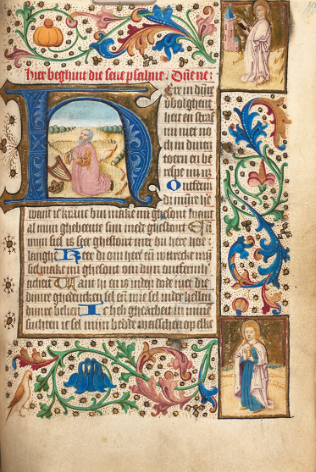 hier beghint die seue psalme. Dñe ne:
HEre in dinre
vbolghent
heit en straf
mi niet no
ch in dinen
toren en be
respe mi ni
Ontferm
di mijnre he
want ic kranc bin make mi ghesont want
al mijn ghebeente sijn mede ghestoert En
mijn siel is seer ghestoert mer du here hoe
langhe Keer di om here en verwecke mijn
siel make mi ghesont om dijn ontfermh
cheit Want ten is inder doet niet die
dinre ghedencken sel en wie sel inder hellen
dinre belien Ic heb ghearbeit in minen
suchten ic sel mijn bedde wasschen op elke